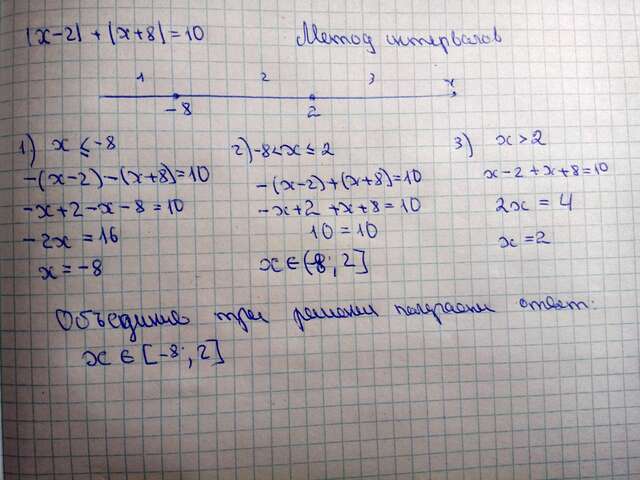 |x-2| + |x+8| = 10 Метод интервалов
1 2 3
-8 2 x
1) x ≤ -8
-(x-2)-(x+8)=10
-x+2-x-8=10
-2x=16
x=-8
2) -8<x≤2
-(x-2)+(x+8)=10
-x+2+x+8=10
10=10
x∈(8;2]
3) x>2
x-2+x+8=10
2x=4
x=2
Объединив три решения получаем ответ:
x∈[-8;2]